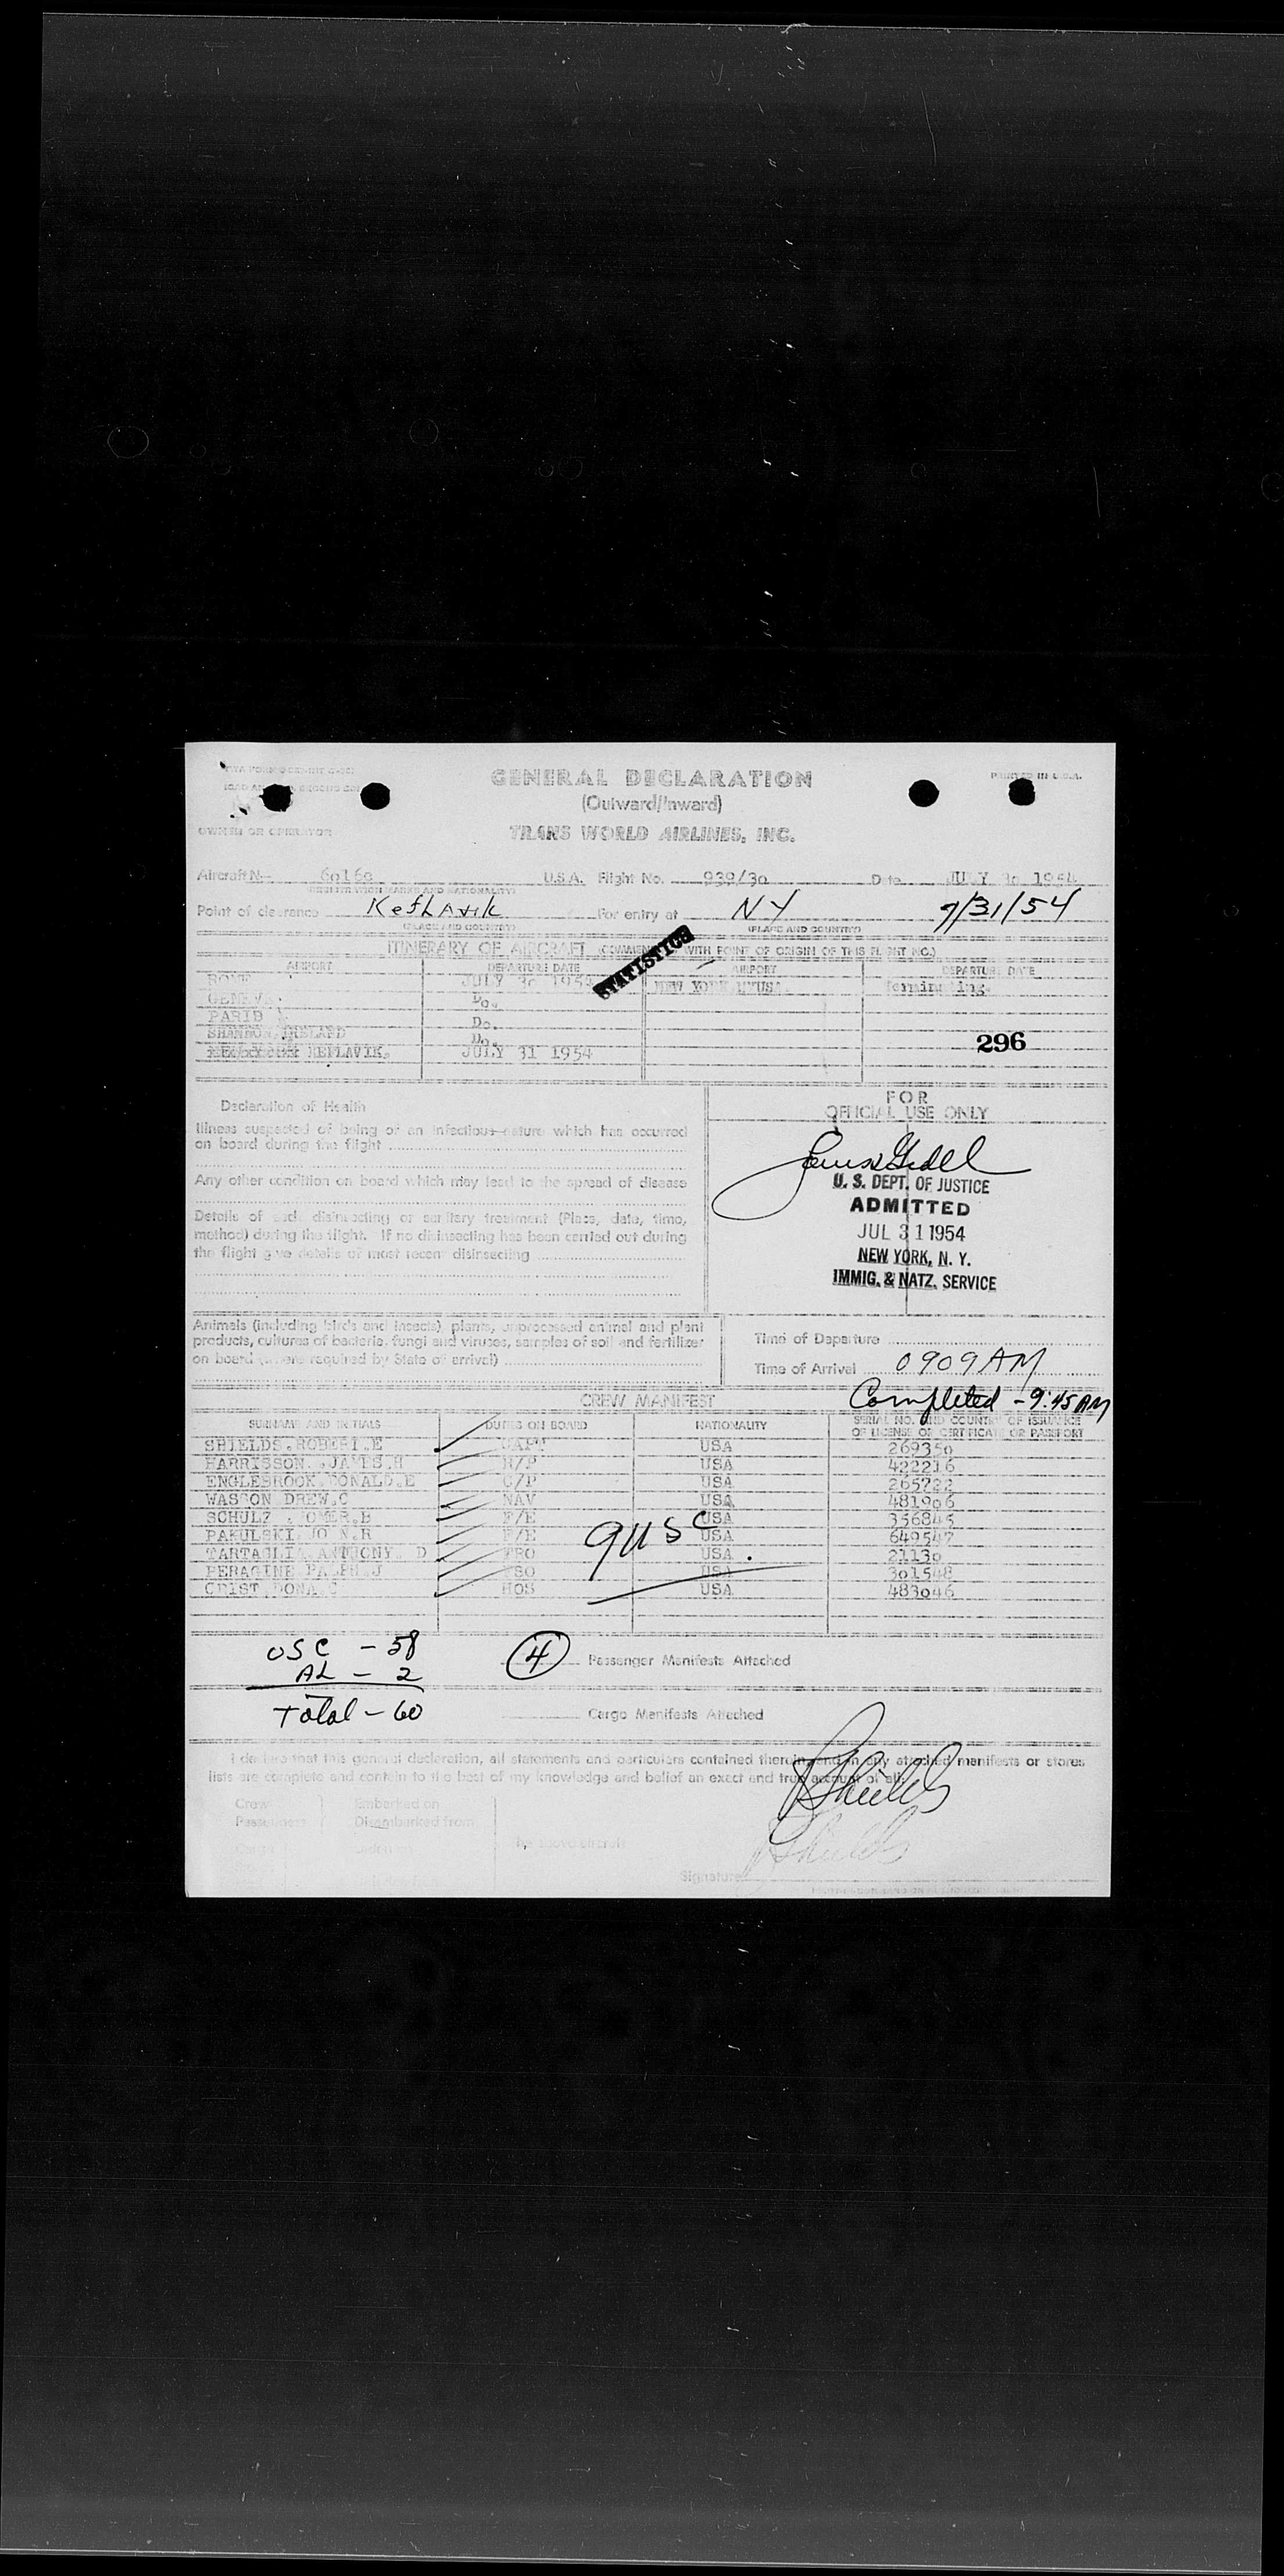 GENERAL DECLARATION
PRINTED IN U.S.A.
(Outward/Inward)
OWNER OR OPERATOR
TRANS WORLD AIRLINES, INC.
Aircraft N— 60160 U.S.A. Flight No. 939/30 Date JULY 30 1954
(REGISTRATION MARKS AND NATIONALITY)
Point of clearance Keflavik For entry at NY 7/31/54
(PLACE AND COUNTRY) (PLACE AND COUNTRY)
ITINERARY OF AIRCRAFT WITH POINT OF ORIGIN OF THIS FLIGHT NO.)
STATISTICS
AIRPORT DEPARTURE DATE AIRPORT DEPARTURE DATE
ROME JULY 30 1954 NEW YORK USA. Terminating.
GENEVA. Do.
PARIS Do.
SHANNON, IRELAND Do.
KEFLAVIK. JULY 31 1954
296
Declaration of Health
FOR
OFFICIAL USE ONLY
Illness suspected of being of an infectious nature which has occurred
on board during the flight
Any other condition on board which may lead to the spread of disease
Details of each disinsecting or sanitary treatment (Place, date, time,
method) during the flight. If no disinsecting has been carried out during
the flight give details of most recent disinsecting
U. S. DEPT. OF JUSTICE
ADMITTED
JUL 31 1954
NEW YORK, N. Y.
IMMIG. & NATZ. SERVICE
Animals (including birds and insects), plants, unprocessed animal and plant
products, cultures of bacteria, fungi and viruses, samples of soil and fertilizer
on board (where required by State of arrival)
Time of Departure
Time of Arrival 0909 AM
Completed - 9:45 AM
CREW MANIFEST
SURNAME AND INITIALS DUTIES ON BOARD NATIONALITY SERIAL NO. AND COUNTRY OF ISSUANCE
OF LICENSE OR CERTIFICATE OR PASSPORT
SHIELDS.ROBERT.E CAPT USA 269350
HARRISSON. JAMES.H R/P USA 422216
ENGLEBROOK.DONALD.E C/P USA 265722
WASSON DREW.C NAV USA 481906
SCHULZ .HOMER.B F/E USA 356845
PAKULSKI.JOHN.R F/E USA 649547
TARTAGLIA ANTHONY. D FRO USA 21130
PERAGINE RALPH.J FSO USA 301548
CRIST DONA.C HOS USA 483046
9 USC
USC - 58
AL - 2
Total - 60
4 Passenger Manifests Attached
Cargo Manifests Attached
I declare that this general declaration, all statements and particulars contained therein, and in any attached manifests or stores
lists are complete and contain to the best of my knowledge and belief an exact and true account of all:
R Shields
Crew Embarked on
Passengers Disembarked from
the above aircraft
Shields
Signature